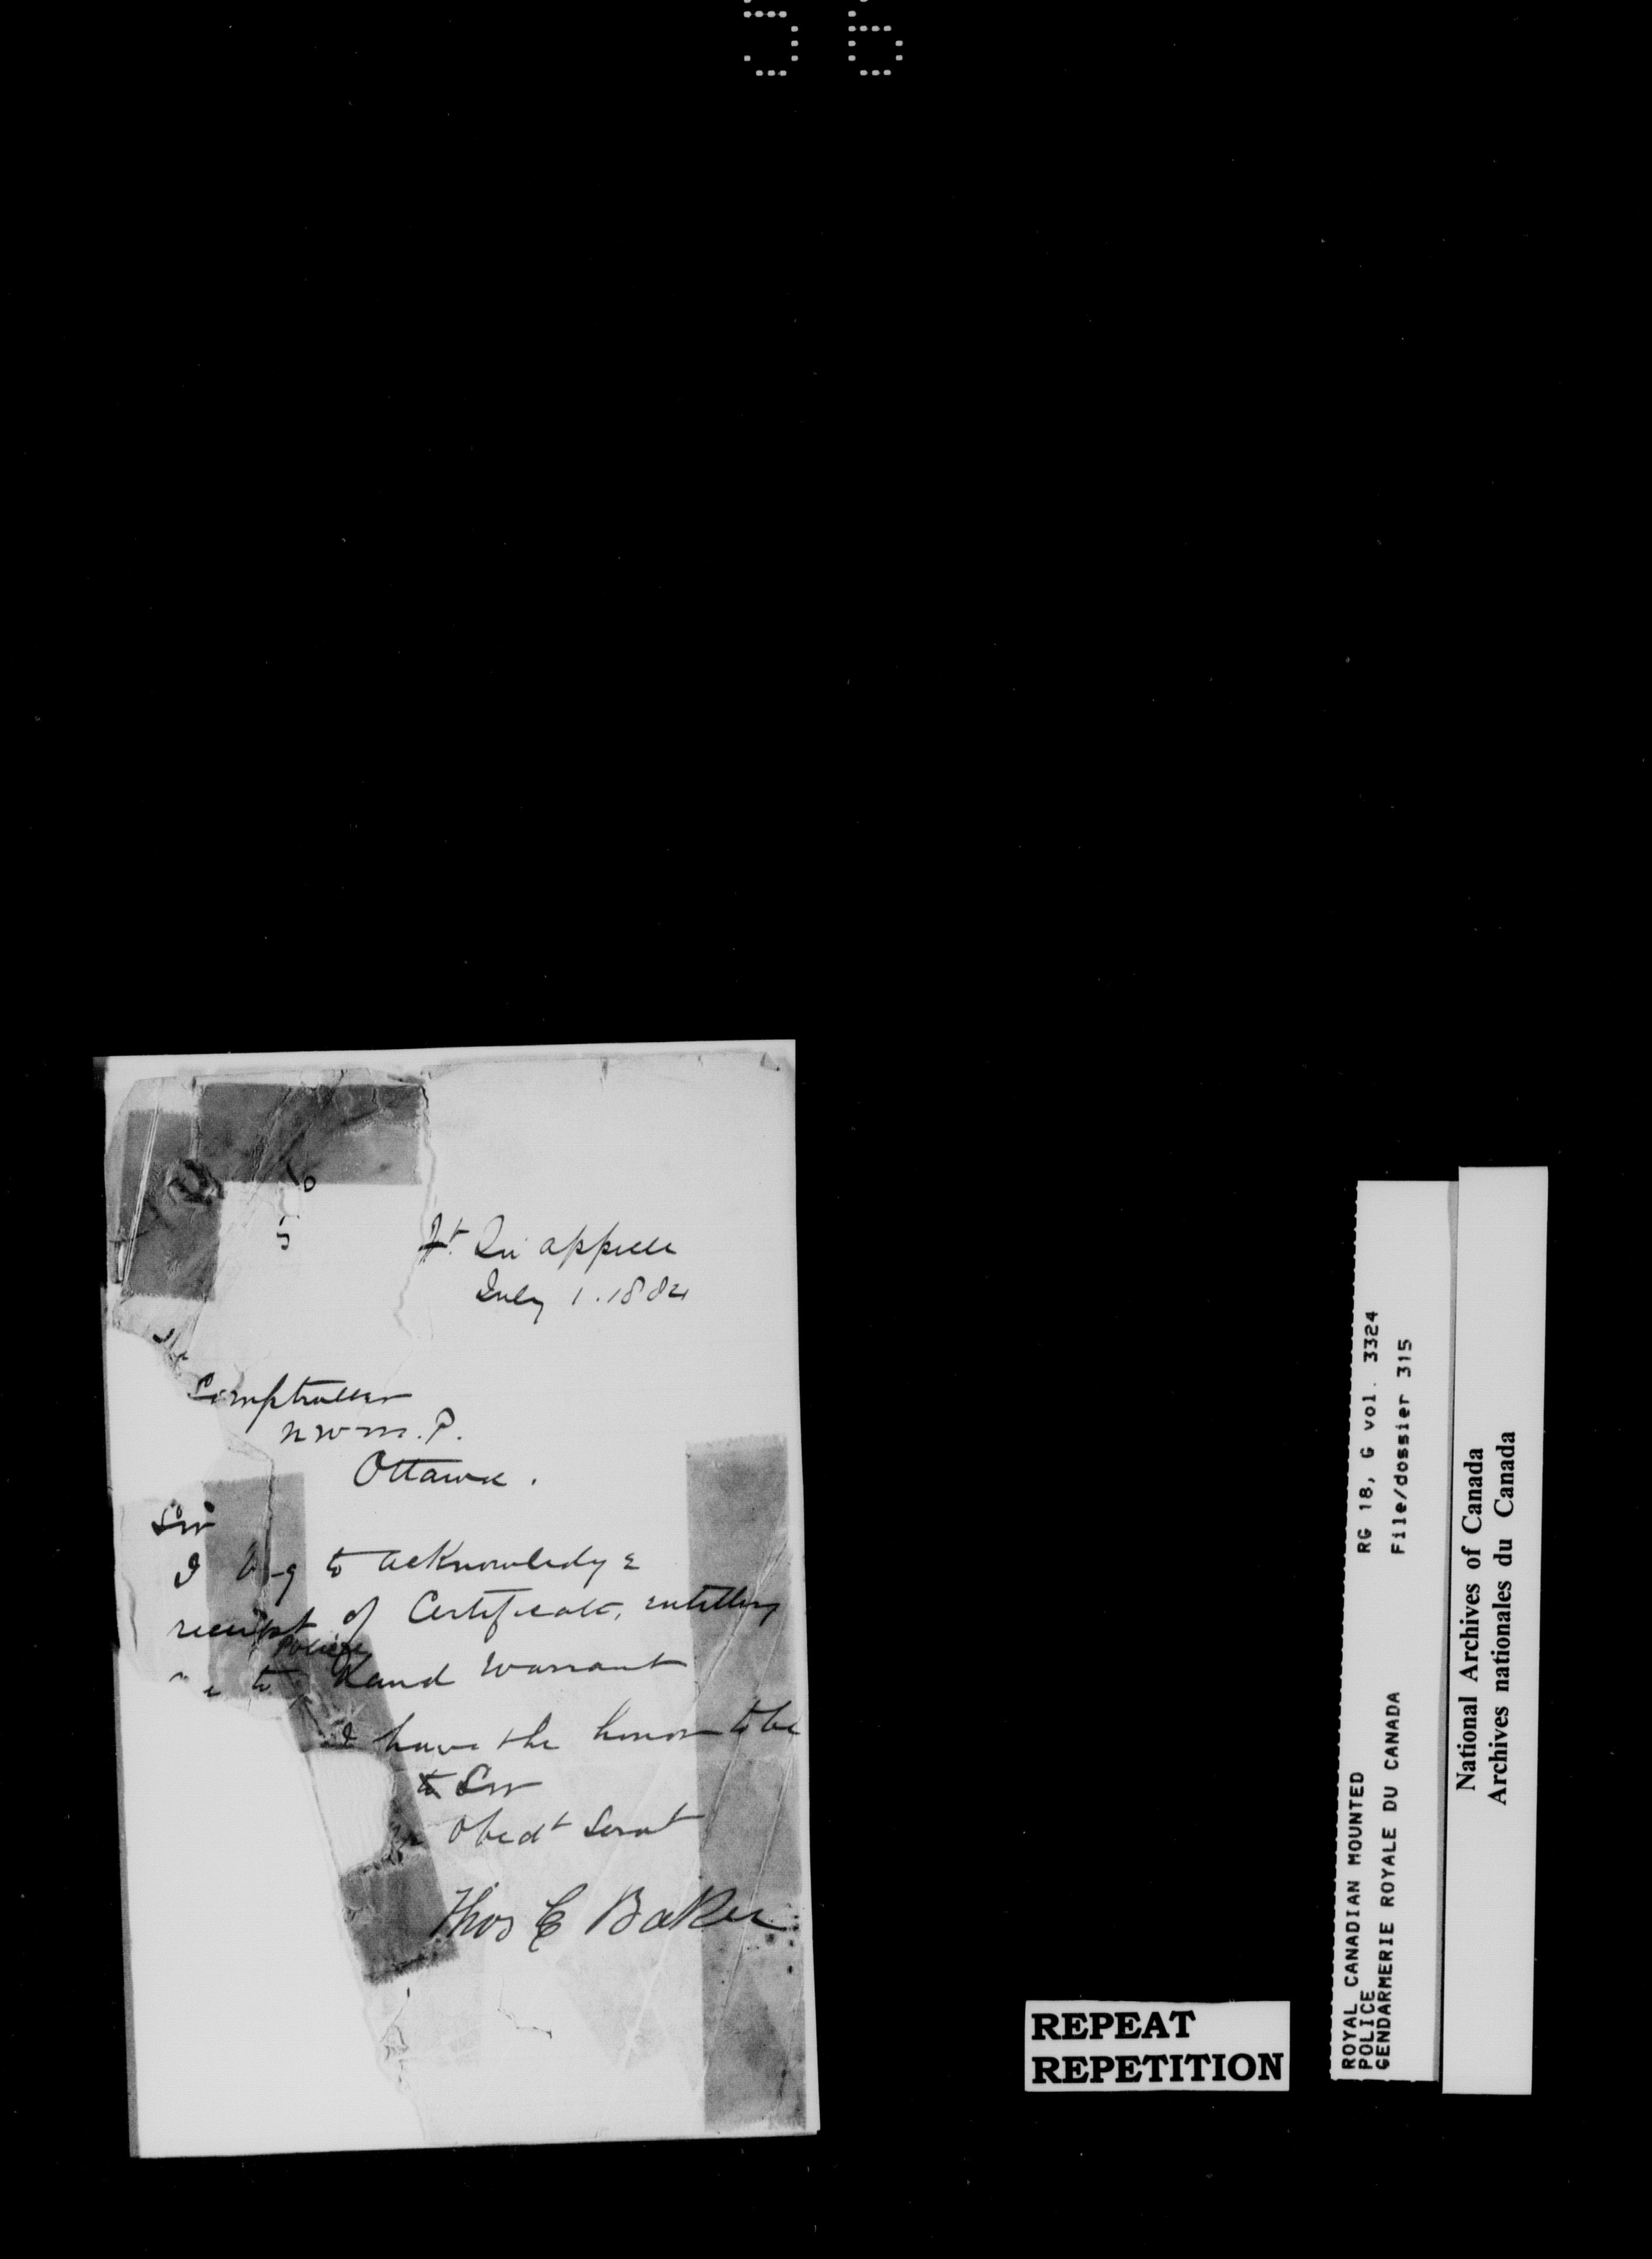 56
Ft. Qu'appelle
July 1. 1884
Comptroller
N W M. P.
Ottawa.
Sir
I beg to acknowledge
receipt of Certificate, entitling
Police
me to Land Warrant
I have the honor to be
Sir
Obedt Servt
Thos E Baker
REPEAT
REPETITION
ROYAL CANADIAN MOUNTED
POLICE
GENDARMERIE ROYALE DU CANADA
RG 18, G vol. 3324
File/dossier 315
National Archives of Canada
Archives nationales du Canada